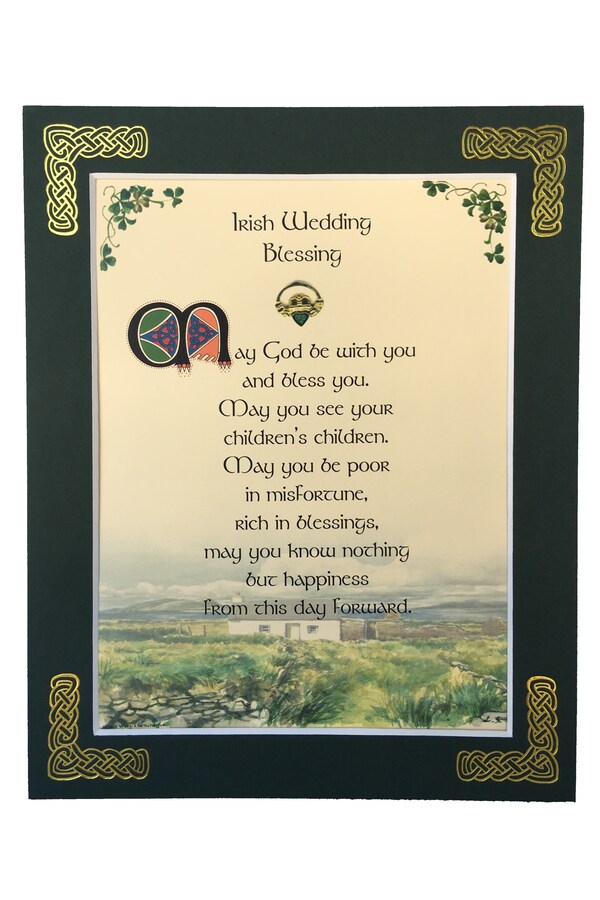 Irish Wedding
Blessing
May God be with you
and bless you.
May you see your
children's children.
May you be poor
in misfortune,
rich in blessings,
may you know nothing
but happiness
from this day forward.